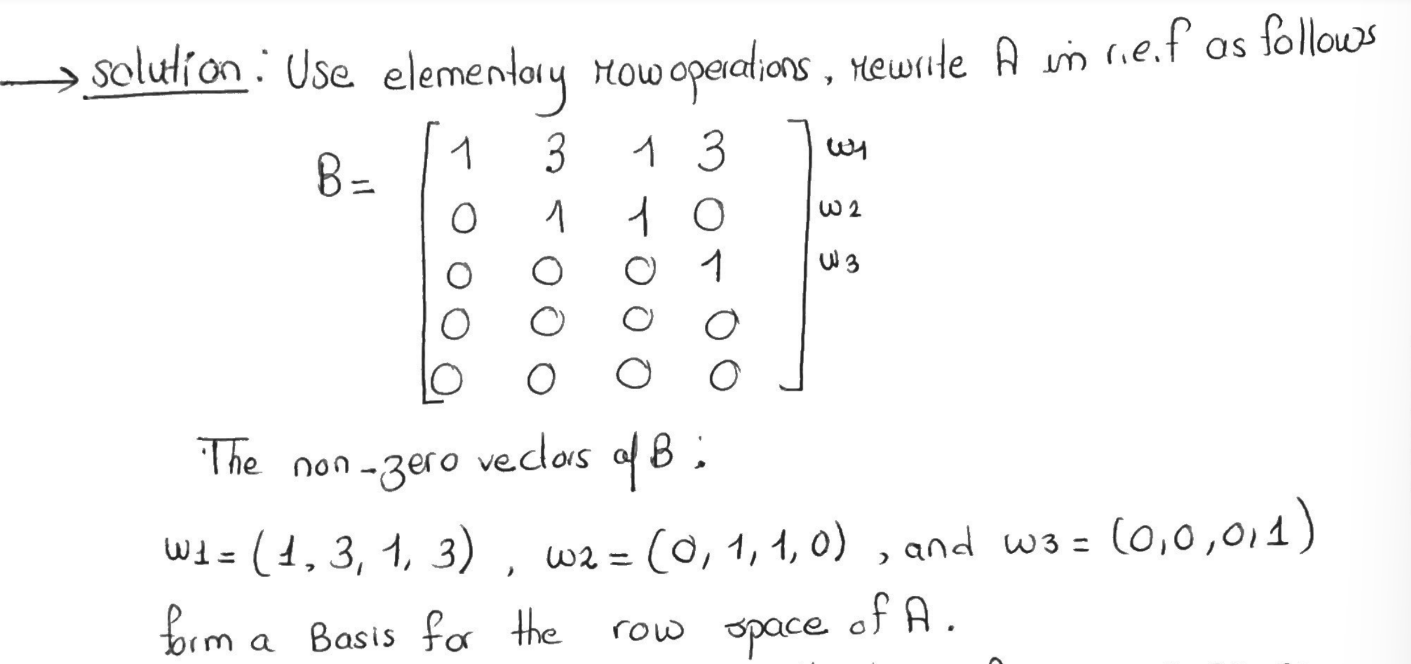 → solution : Use elementary row operations, rewrite A in r.e.f as follows
B = [ 1 3 1 3 ] w1
0 1 1 0 w2
0 0 0 1 w3
0 0 0 0
0 0 0 0
The non-zero vectors of B :
w1 = (1, 3, 1, 3) , w2 = (0, 1, 1, 0) , and w3 = (0,0,0,1)
form a Basis for the row space of A.